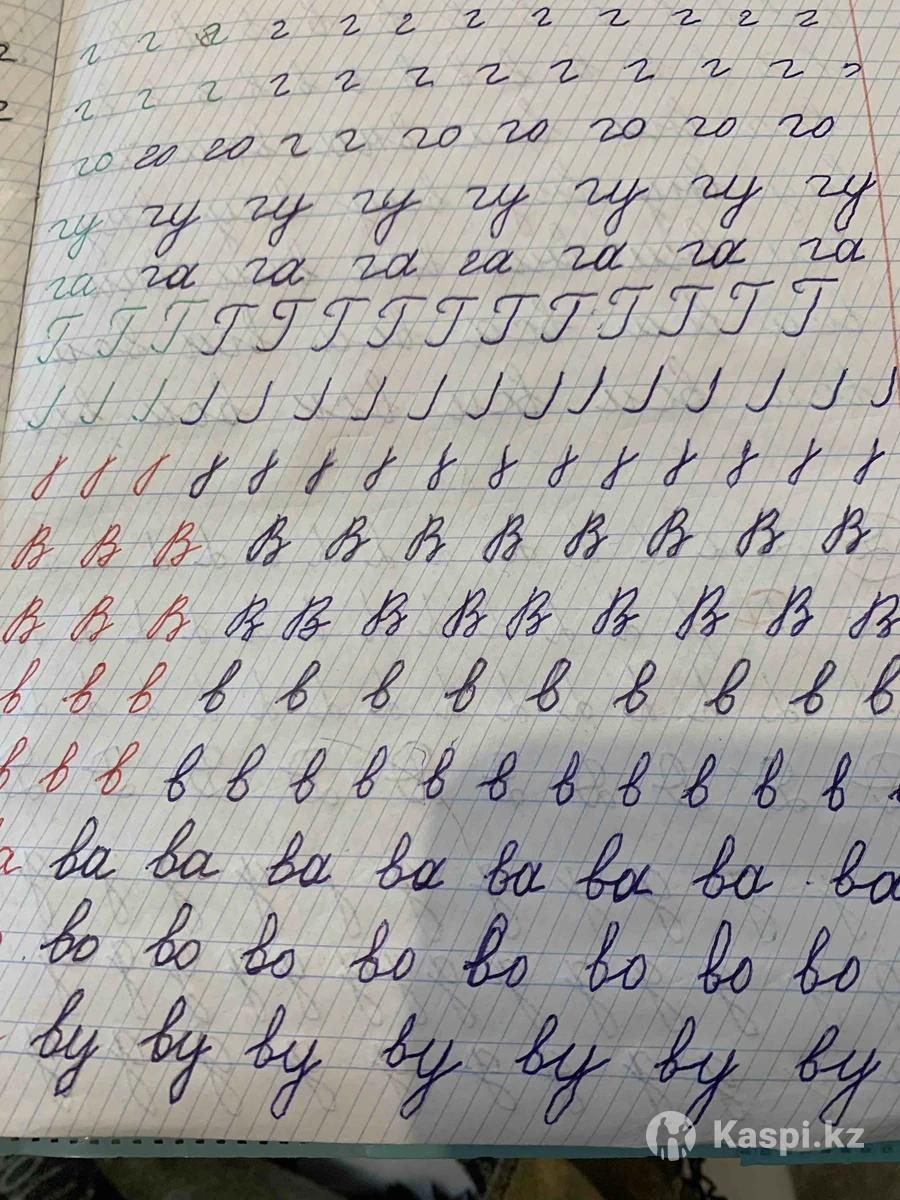 г г г г г г г г г г г г
г г г г г г г г г г г г
го го го г г го го го го го
гу гу гу гу гу гу гу гу
га га га га га га га га
Г Г Г Г Г Г Г Г Г Г Г Г Г Г
В В В В В В В В В В В
В В В В В В В В В В В В
в в в в в в в в в в в в
в в в в в в в в в в в в в
а ва ва ва ва ва ва ва ва
во во во во во во во во
ву ву ву ву ву ву ву
Kaspi.kz